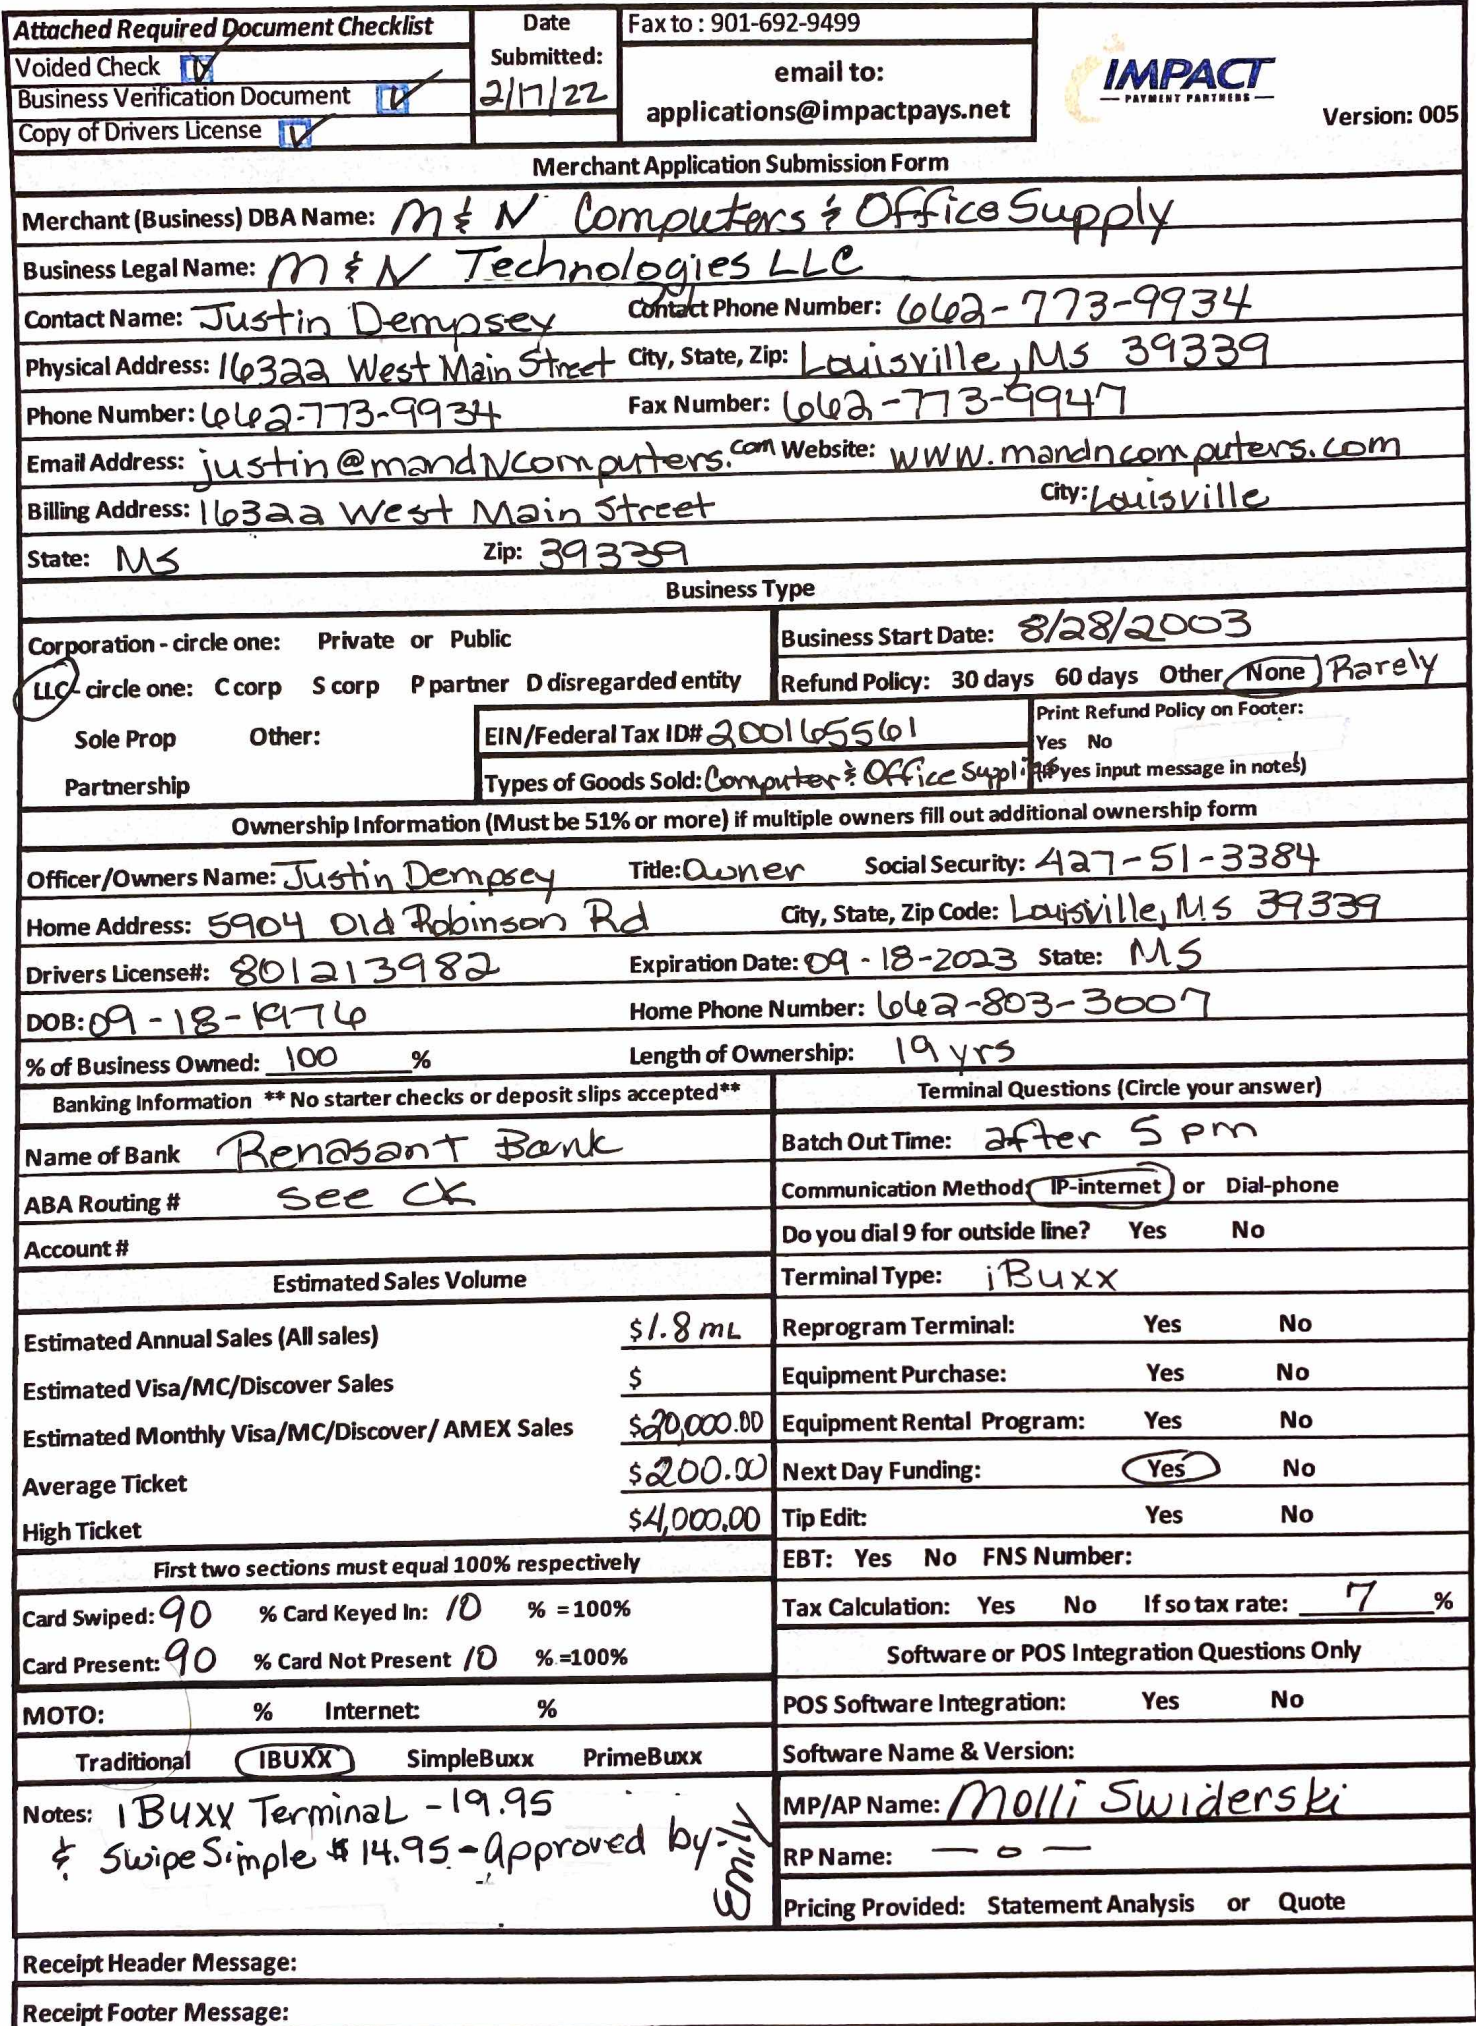 Attached Required Document Checklist
Voided Check
Business Verification Document
Copy of Drivers License
Date
Submitted:
2/17/22
Fax to : 901-692-9499
email to:
applications@impactpays.net
IMPACT
PAYMENT PARTNERS
Version: 005
Merchant Application Submission Form
Merchant (Business) DBA Name: M & N Computers & Office Supply
Business Legal Name: M & N Technologies LLC
Contact Name: Justin Dempsey Contact Phone Number: 662-773-9934
Physical Address: 16322 West Main Street City, State, Zip: Louisville, MS 39339
Phone Number: 662-773-9934 Fax Number: 662-773-9947
Email Address: justin@mandNcomputers.com Website: www.mandncomputers.com
Billing Address: 16322 West Main Street City: Louisville
State: MS Zip: 39339
Business Type
Corporation - circle one: Private or Public
LLC - circle one: C corp S corp P partner D disregarded entity
Sole Prop Other:
Partnership
Business Start Date: 8/28/2003
Refund Policy: 30 days 60 days Other None Rarely
EIN/Federal Tax ID# 200165561
Types of Goods Sold: Computer & Office Supplies
Print Refund Policy on Footer:
Yes No
(If yes input message in notes)
Ownership Information (Must be 51% or more) if multiple owners fill out additional ownership form
Officer/Owners Name: Justin Dempsey Title: Owner Social Security: 427-51-3384
Home Address: 5904 Old Robinson Rd City, State, Zip Code: Louisville, MS 39339
Drivers License#: 801213982 Expiration Date: 09-18-2023 State: MS
DOB: 09-18-1976 Home Phone Number: 662-803-3007
% of Business Owned: 100 % Length of Ownership: 19 yrs
Banking Information ** No starter checks or deposit slips accepted**
Name of Bank Renasant Bank
ABA Routing # See CK
Account #
Estimated Sales Volume
Estimated Annual Sales (All sales) $1.8 mL
Estimated Visa/MC/Discover Sales $
Estimated Monthly Visa/MC/Discover/ AMEX Sales $20,000.00
Average Ticket $200.00
High Ticket $4,000.00
First two sections must equal 100% respectively
Card Swiped: 90 % Card Keyed In: 10 % =100%
Card Present: 90 % Card Not Present 10 %=100%
MOTO: % Internet: %
Traditional IBUXX SimpleBuxx PrimeBuxx
Notes: iBuxx Terminal - 19.95
& Swipe Simple $ 14.95 - Approved by:
Terminal Questions (Circle your answer)
Batch Out Time: after 5 pm
Communication Method: IP-internet or Dial-phone
Do you dial 9 for outside line? Yes No
Terminal Type: iBuxx
Reprogram Terminal: Yes No
Equipment Purchase: Yes No
Equipment Rental Program: Yes No
Next Day Funding: Yes No
Tip Edit: Yes No
EBT: Yes No FNS Number:
Tax Calculation: Yes No If so tax rate: 7 %
Software or POS Integration Questions Only
POS Software Integration: Yes No
Software Name & Version:
MP/AP Name: Molli Swiderski
RP Name: — 0 —
Pricing Provided: Statement Analysis or Quote
Receipt Header Message:
Receipt Footer Message: